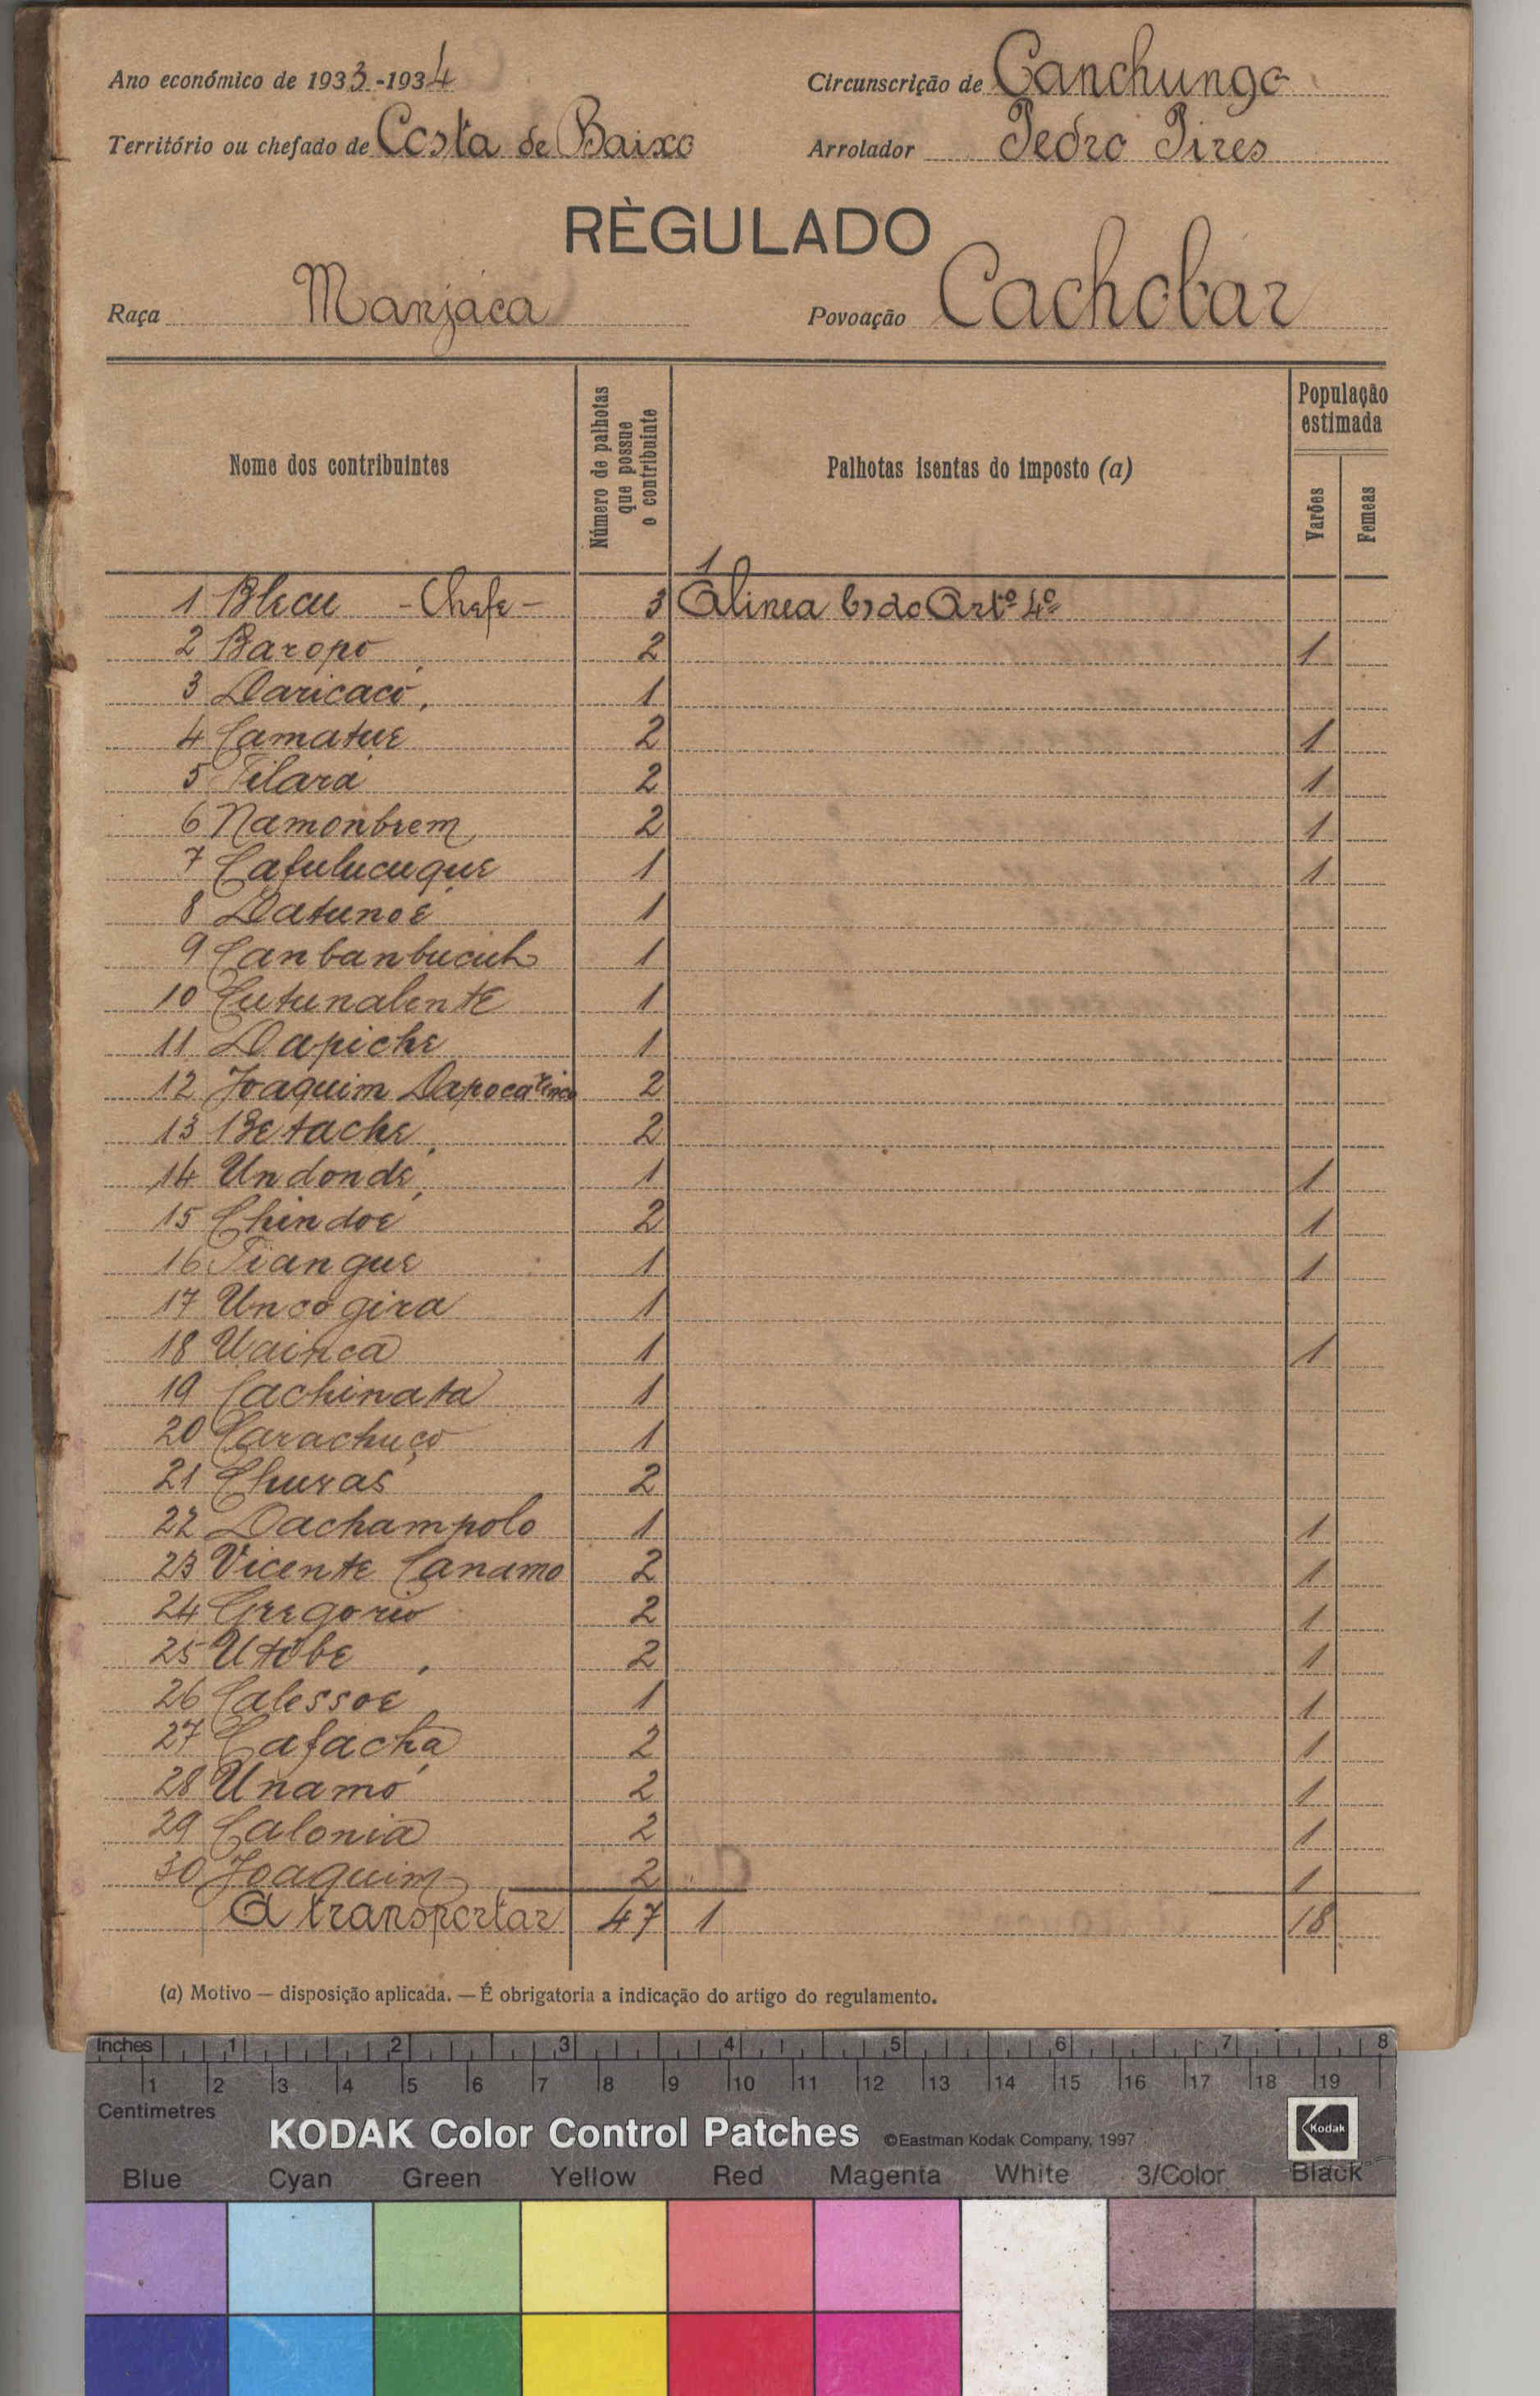 Ano económico de 1933-1934 Circunscrição de Canchungo
Território ou chefado de Costa de Baixo Arrolador Pedro Pires
RÈGULADO
Raça Manjaca Povoação Cachobar
Nome dos contribuintes
Número de palhotas que possue o contribuinte
Palhotas isentas do imposto (a)
População estimada
Varões
Femeas
1
1 Blecu - Chefe - 3 Alinea b) do Artº 4º
2 Baropo 2 1
3 Daricacó 1
4 Camatue 2 1
5 Tilará 2 1
6 Namonbrem 2 1
7 Cafulucuque 1 1
8 Datunoé 1
9 Canbanbucuh 1
10 Cutunalente 1
11 Dapiche 1
12 Joaquim 2
13 Betache 2
14 Undonde 1 1
15 Chindoe 2 1
16 Tiangue 1 1
17 Uncogira 1
18 Uainca 1 1
19 Cachinata 1
20 Carachuço 1
21 Churas 2
22 Dachampolo 1 1
23 Vicente Canamo 2 1
24 Gregorio 2 1
25 Utobe 2 1
26 Calessoe 1 1
27 Cafacha 2 1
28 Unamó 2 1
29 Calonia 2 1
30 Joaquim 2 1
A transportar 47 1 18
(a) Motivo — disposição aplicada. — É obrigatoria a indicação do artigo do regulamento.
Inches 1 2 3 4 5 6 7 8
1 2 3 4 5 6 7 8 9 10 11 12 13 14 15 16 17 18 19
Centimetres
KODAK Color Control Patches ©Eastman Kodak Company, 1997 Kodak
Blue Cyan Green Yellow Red Magenta White 3/Color Black